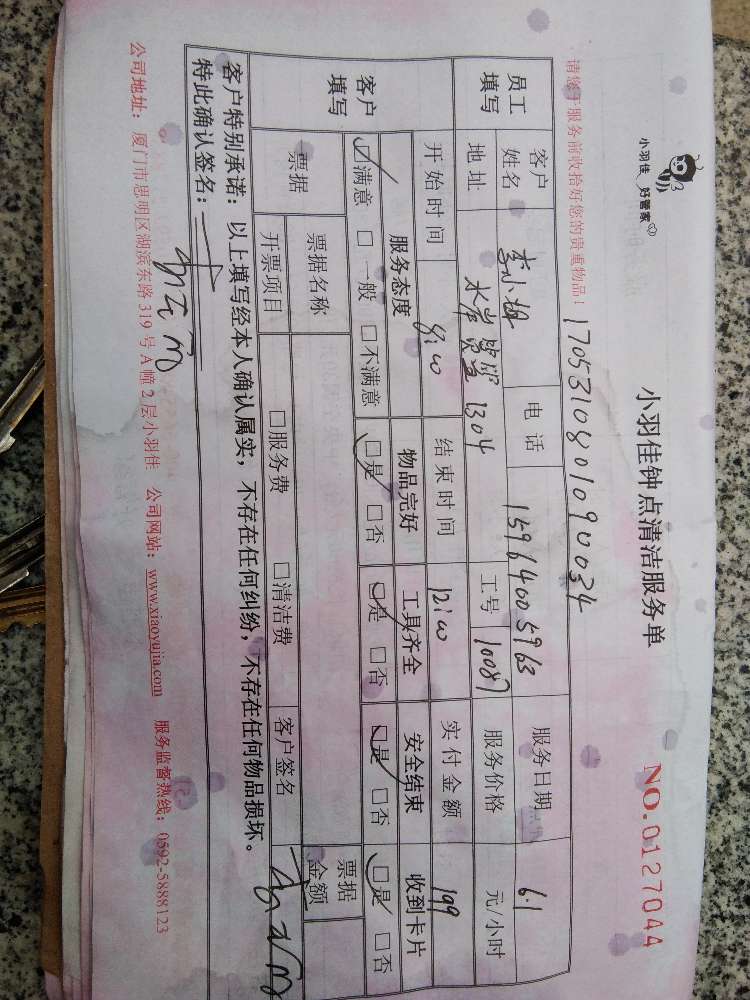 小羽佳 好管家
小羽佳钟点清洁服务单
NO.0127044
请您于服务前收拾好您的贵重物品!
17053108010900034
员工填写
客户姓名 李小姐 电话 15964005963 服务日期 6.1
地址 水岸 1304 工号 10087 服务价格 元/小时
客户填写
开始时间 9:00 结束时间 12:00 实付金额 199
服务态度 物品完好 工具齐全 安全结束 收到卡片
☑满意 □一般 □不满意 ☑是 □否 ☑是 □否 ☑是 □否 ☑是 □否
票据 票据名称 票据金额
开票项目 □服务费 □清洁费 客户签名
客户特别承诺:以上填写经本人确认属实,不存在任何纠纷,不存在任何物品损坏。
特此确认签名:
公司地址:厦门市思明区湖滨东路319号A幢2层小羽佳 公司网站:www.xiaoyujia.com 服务监督热线:0592-5888123